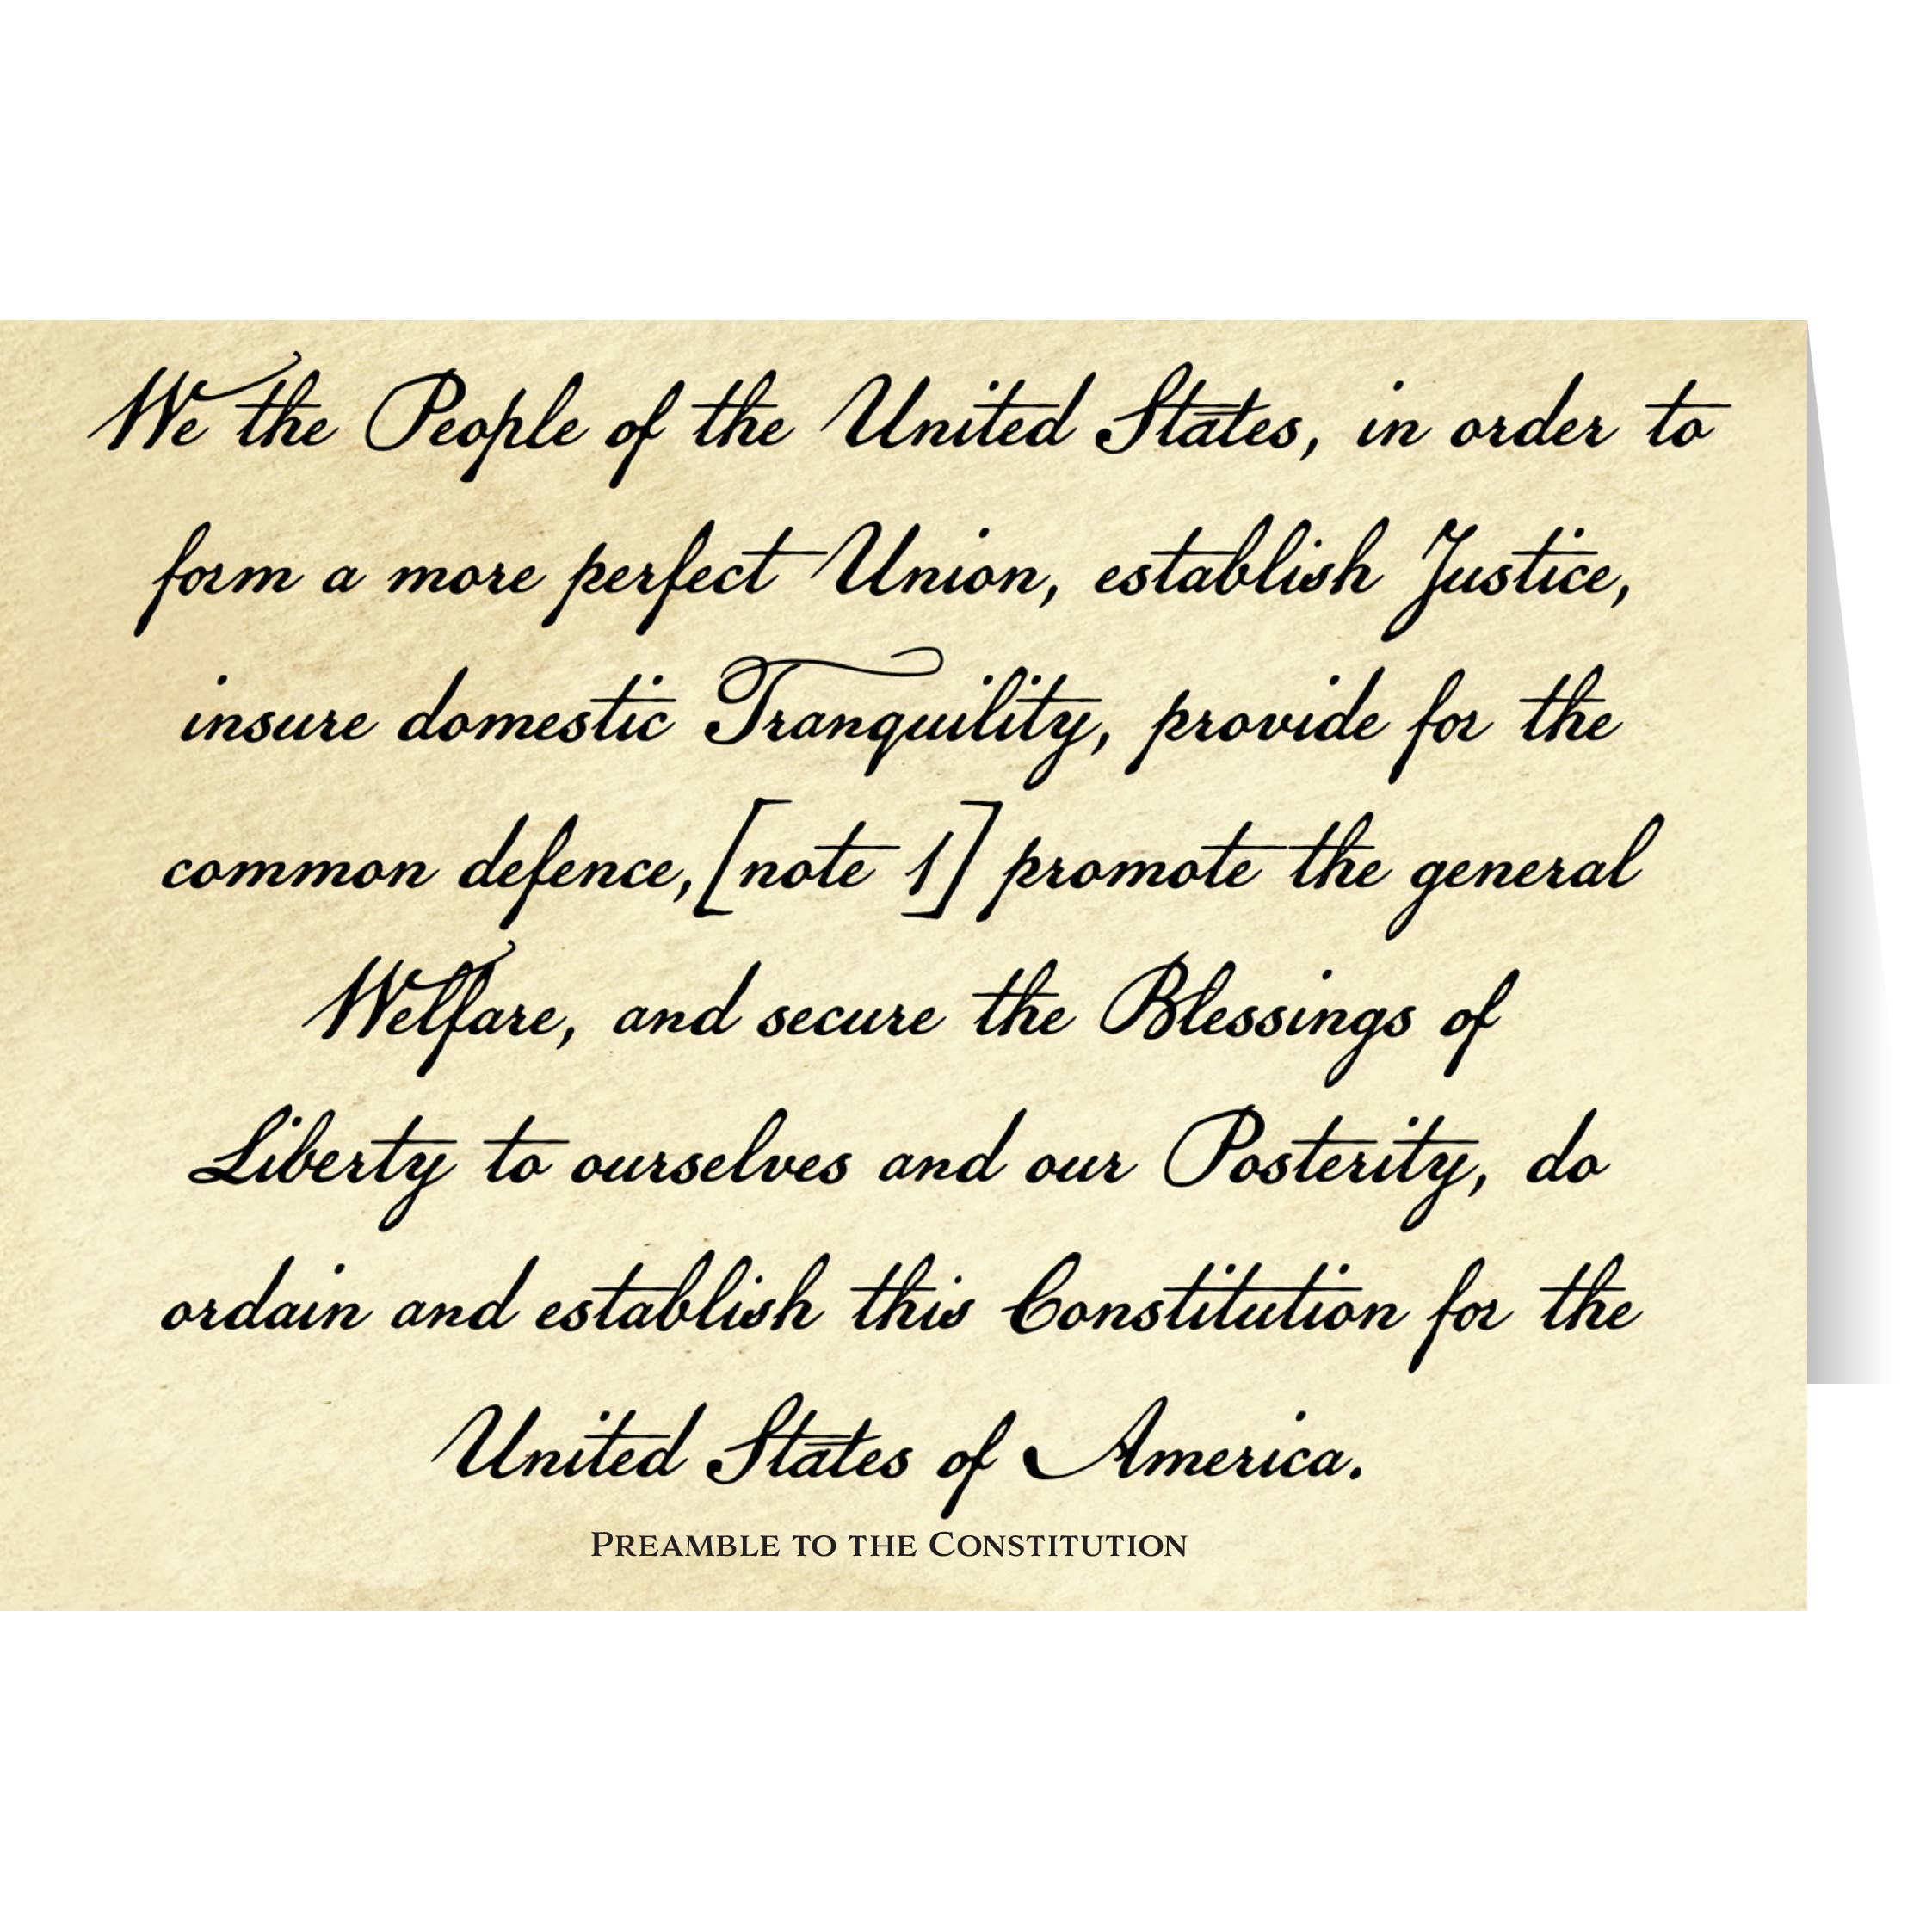 We the People of the United States, in order to
form a more perfect Union, establish Justice,
insure domestic Tranquility, provide for the
common defence,[note 1] promote the general
Welfare, and secure the Blessings of
Liberty to ourselves and our Posterity, do
ordain and establish this Constitution for the
United States of America.
Preamble to the Constitution